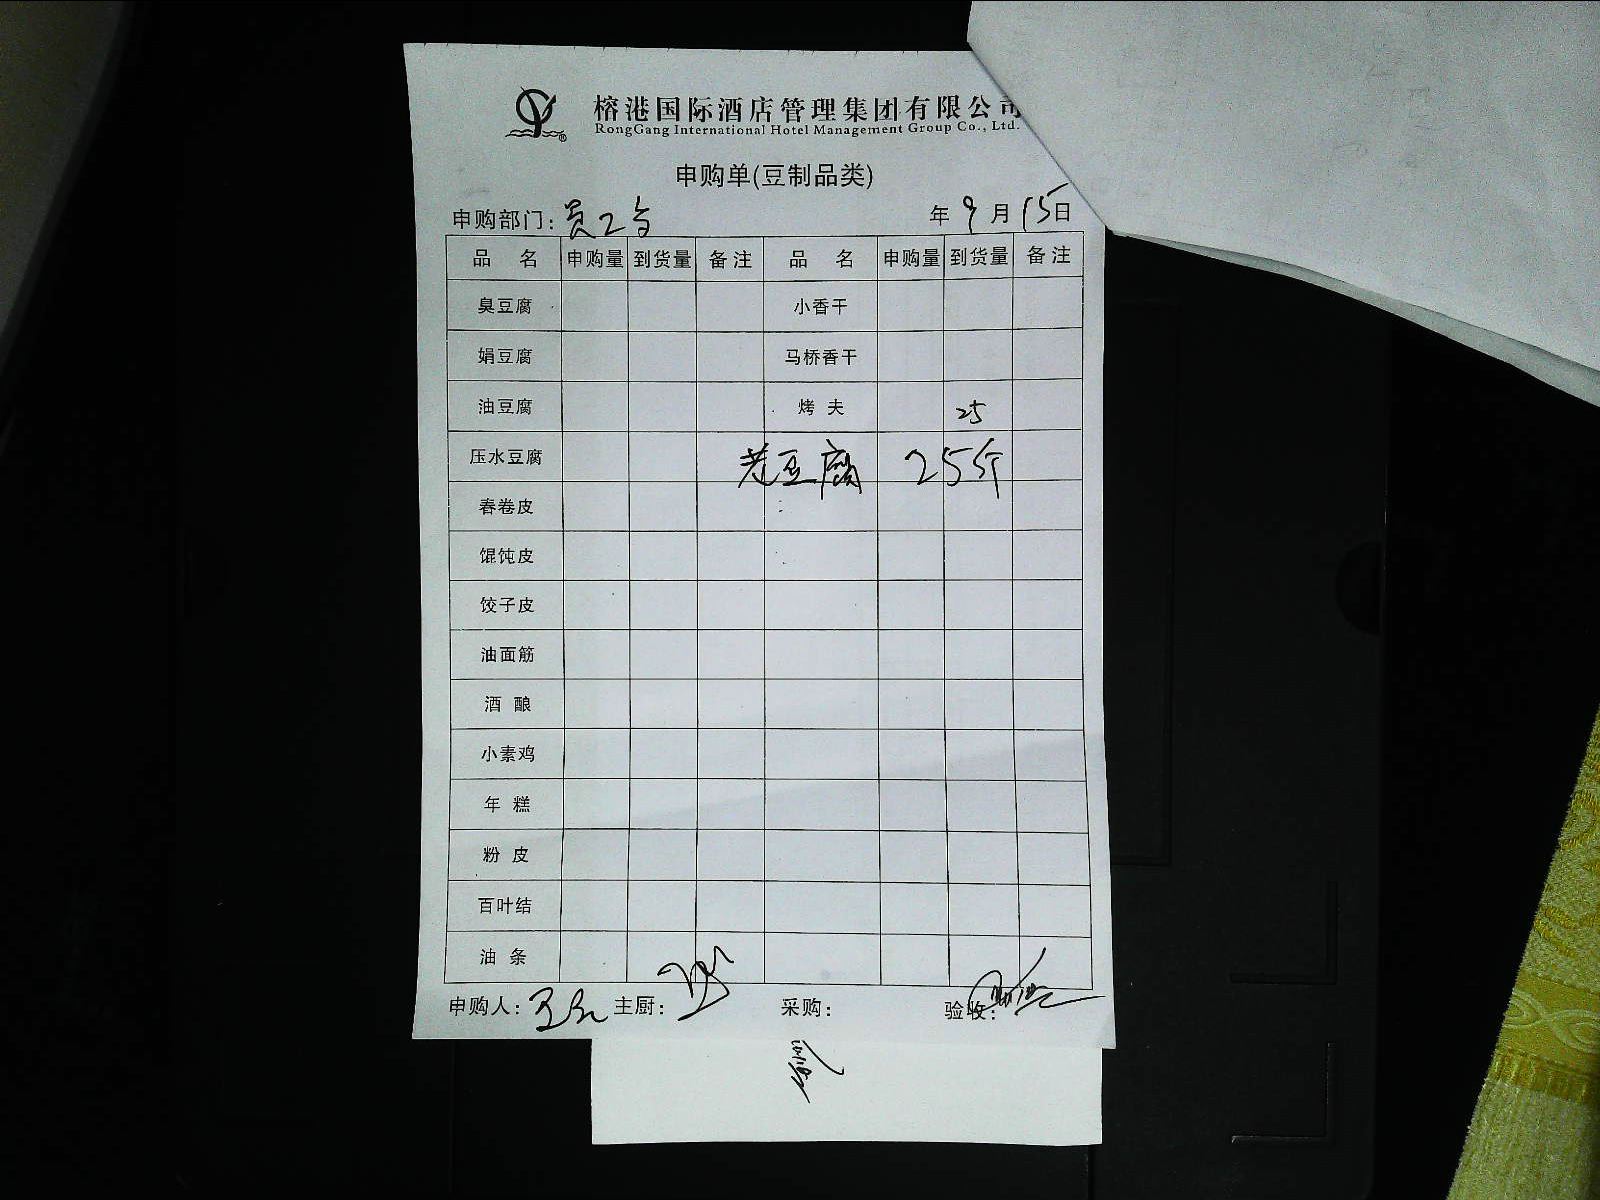 榕港国际酒店管理集团有限公司
RongGang International Hotel Management Group Co., Ltd.
申购单(豆制品类)
申购部门: 员工食 年 9 月 15 日
品 名 申购量 到货量 备注 品 名 申购量 到货量 备注
臭豆腐 小香干
娟豆腐 马桥香干
油豆腐 烤 夫 25
压水豆腐 老豆腐 25斤
春卷皮
馄饨皮
饺子皮
油面筋
酒 酿
小素鸡
年 糕
粉 皮
百叶结
油 条
申购人: 主厨: 采购: 验收: